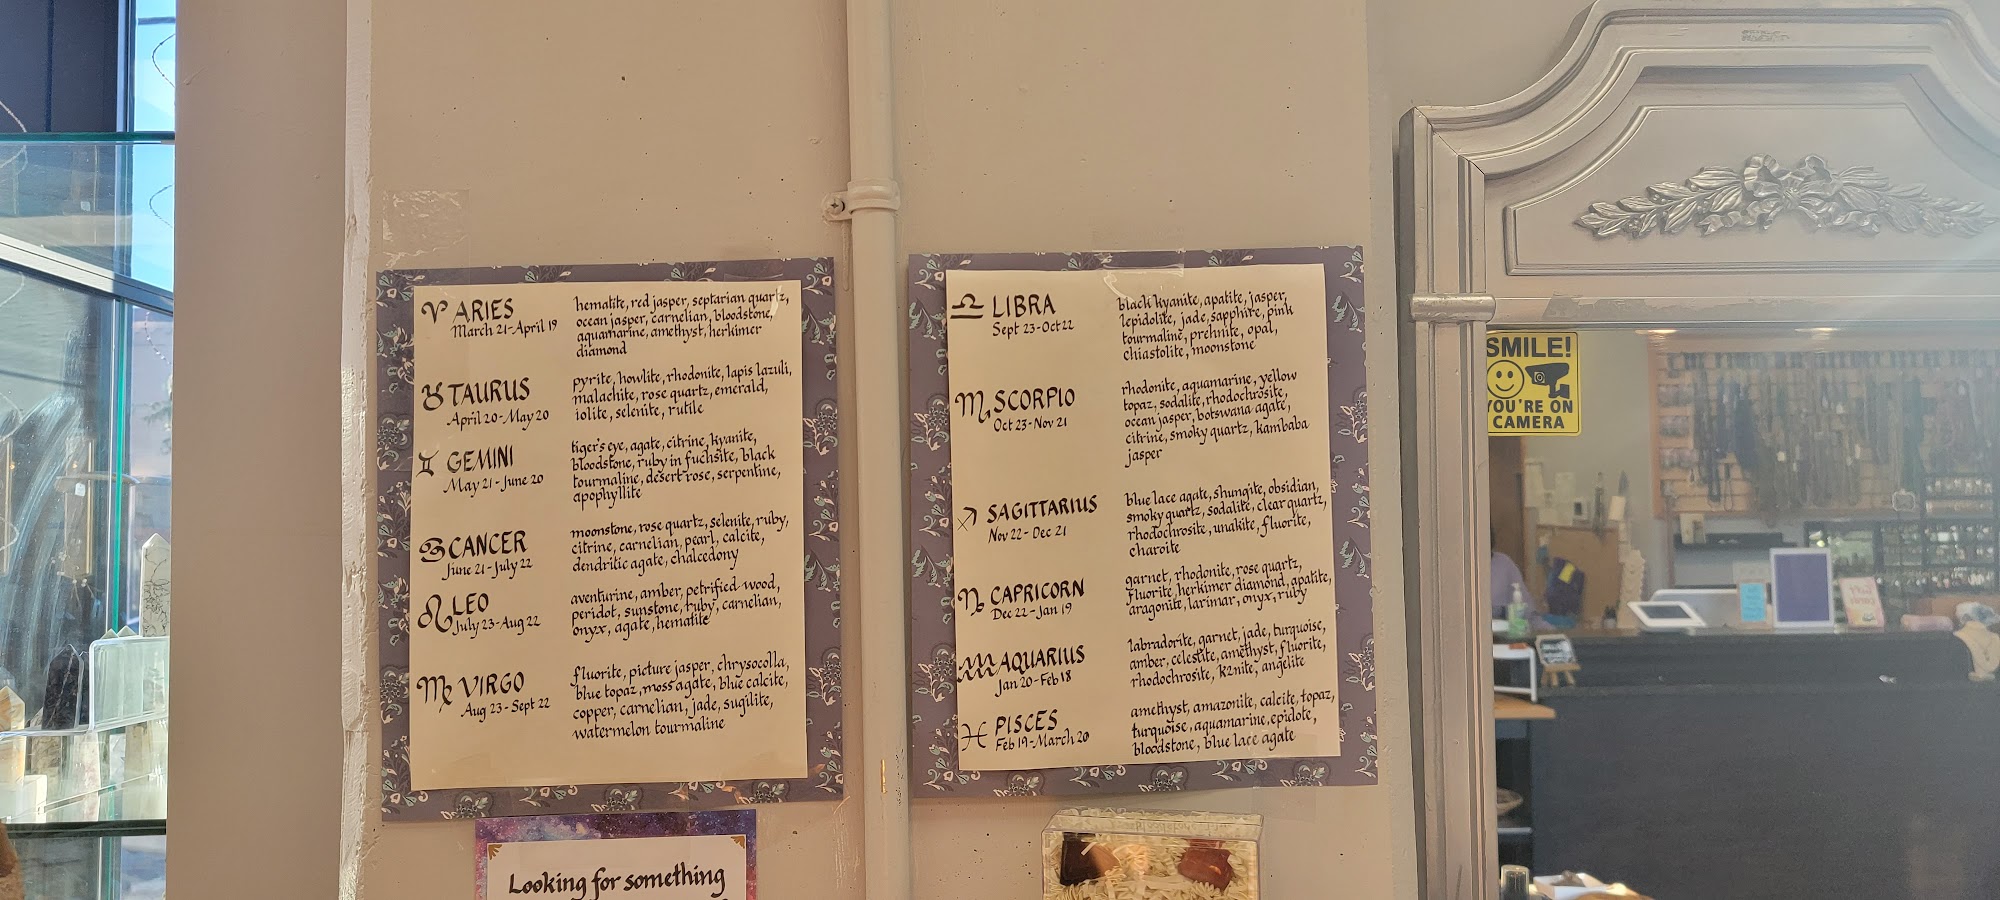 ARIES
March 21-April 19
hematite, red jasper, septarian quartz,
ocean jasper, carnelian, bloodstone,
aquamarine, amethyst, herkimer
diamond
TAURUS
April 20-May 20
pyrite, howlite, rhodonite, lapis lazuli,
malachite, rose quartz, emerald,
iolite, selenite, rutile
GEMINI
May 21-June 20
tiger's eye, agate, citrine, kyanite,
bloodstone, ruby in fuchsite, black
tourmaline, desert rose, serpentine,
apophyllite
CANCER
June 21-July 22
moonstone, rose quartz, selenite, ruby,
citrine, carnelian, pearl, calcite,
dendritic agate, chalcedony
LEO
July 23-Aug 22
aventurine, amber, petrified wood,
peridot, sunstone, ruby, carnelian,
onyx, agate, hematite
VIRGO
Aug 23-Sept 22
fluorite, picture jasper, chrysocolla,
blue topaz, moss agate, blue calcite,
copper, carnelian, jade, sugilite,
watermelon tourmaline
Looking for something
LIBRA
Sept 23-Oct 22
black kyanite, apatite, jasper,
lepidolite, jade, sapphire, pink
tourmaline, prehnite, opal,
chiastolite, moonstone
SCORPIO
Oct 23-Nov 21
rhodonite, aquamarine, yellow
topaz, sodalite, rhodochrosite,
ocean jasper, botswana agate,
citrine, smoky quartz, kambaba
jasper
SAGITTARIUS
Nov 22-Dec 21
blue lace agate, shungite, obsidian,
smoky quartz, sodalite, clear quartz,
rhodochrosite, unakite, fluorite,
charoite
CAPRICORN
Dec 22-Jan 19
garnet, rhodonite, rose quartz,
fluorite, herkimer diamond, apatite,
aragonite, larimar, onyx, ruby
AQUARIUS
Jan 20-Feb 18
labradorite, garnet, jade, turquoise,
amber, celestite, amethyst, fluorite,
rhodochrosite, k2nite, angelite
PISCES
Feb 19-March 20
amethyst, amazonite, calcite, topaz,
turquoise, aquamarine, epidote,
bloodstone, blue lace agate
SMILE!
YOU'RE ON
CAMERA